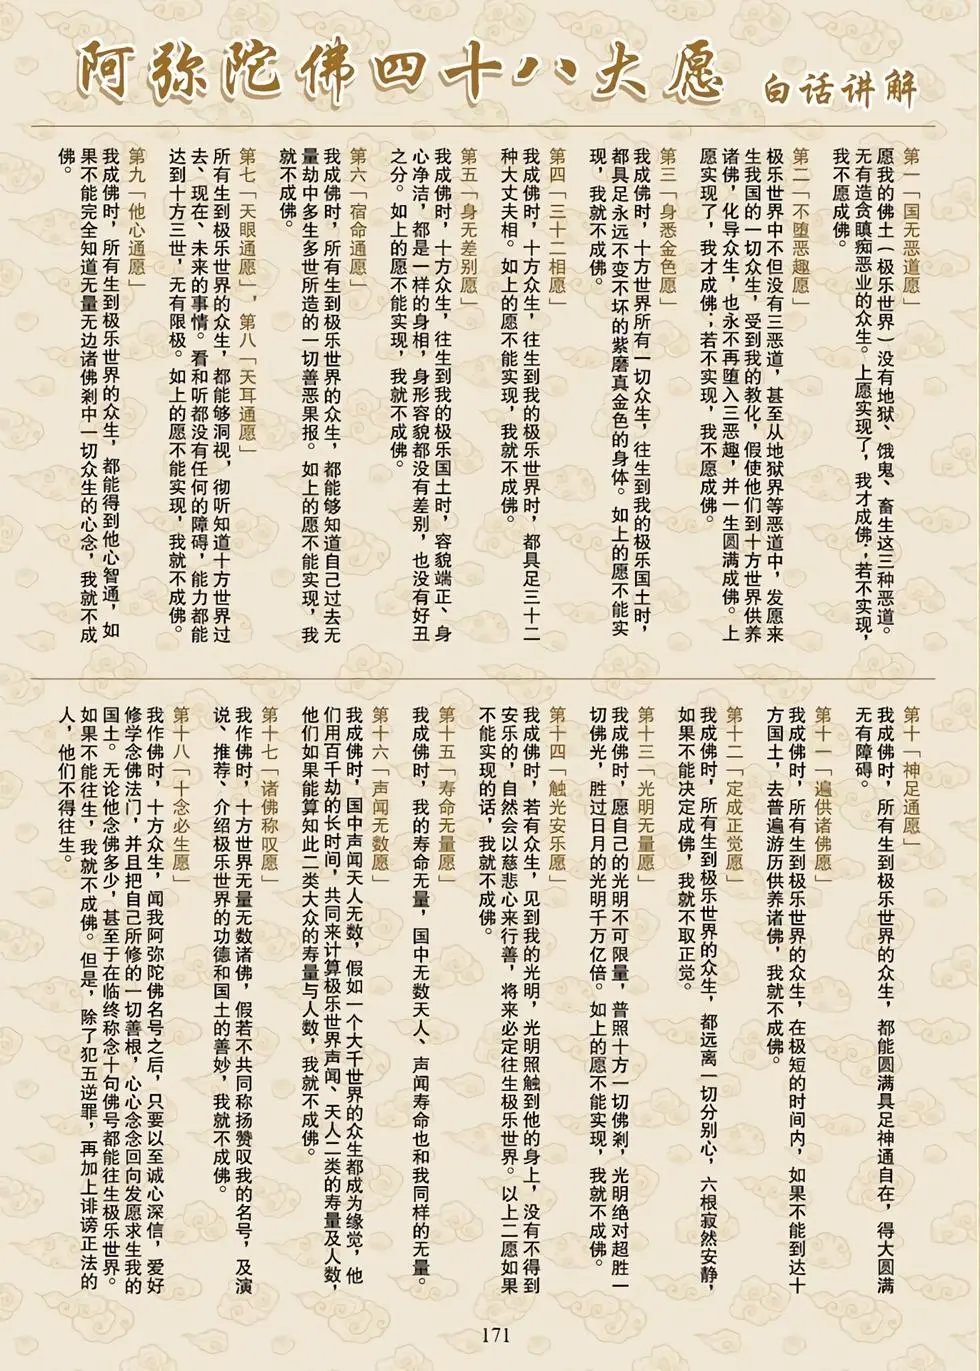 阿弥陀佛四十八大愿 白话讲解
第一「国无恶道愿」
愿我的佛土（极乐世界）没有地狱、饿鬼、畜生这三种恶道。
无有造贪瞋痴恶业的众生。上愿实现了，我才成佛；若不实现，
我不愿成佛。
第二「不堕恶趣愿」
极乐世界中不但没有三恶道，甚至从地狱界等恶道中，发愿来
生我国的一切众生，受到我的教化，假使他们到十方世界供养
诸佛，化导众生，也永不再堕入三恶趣，并一生圆满成佛。上
愿实现了，我才成佛；若不实现，我不愿成佛。
第三「身悉金色愿」
我成佛时，十方世界所有一切众生，往生到我的极乐国土时，
都具足永远不变不坏的紫磨真金色的身体。如上的愿不能实
现，我就不成佛。
第四「三十二相愿」
我成佛时，十方众生，往生到我的极乐世界时，都具足三十二
种大丈夫相。如上的愿不能实现，我就不成佛。
第五「身无差别愿」
我成佛时，十方众生，往生到我的极乐国土时，容貌端正、身
心净洁，都是一样的身相，身形容貌都没有差别，也没有好丑
之分。如上的愿不能实现，我就不成佛。
第六「宿命通愿」
我成佛时，所有生到极乐世界的众生，都能够知道自己过去无
量劫中多生多世所造的一切善恶果报。如上的愿不能实现，我
就不成佛。
第七「天眼通愿」，第八「天耳通愿」
所有生到极乐世界的众生，都能够洞视，彻听知道十方世界过
去、现在、未来的事情。看和听都没有任何的障碍，能力都能
达到十方三世，无有限极。如上的愿不能实现，我就不成佛。
第九「他心通愿」
我成佛时，所有生到极乐世界的众生，都能得到他心智通，如
果不能完全知道无量无边诸佛刹中一切众生的心念，我就不成
佛。
第十「神足通愿」
我成佛时，所有生到极乐世界的众生，都能圆满具足神通自在，得大圆满
无有障碍。
第十一「遍供诸佛愿」
我成佛时，所有生到极乐世界的众生，在极短的时间内，如果不能到达十
方国土，去普遍游历供养诸佛，我就不成佛。
第十二「定成正觉愿」
我成佛时，所有生到极乐世界的众生，都远离一切分别心，六根寂然安静，
如果不能决定成佛，我就不取正觉。
第十三「光明无量愿」
我成佛时，愿自己的光明不可限量，普照十方一切佛刹，光明绝对超胜一
切佛光，胜过日月的光明千万亿倍。如上的愿不能实现，我就不成佛。
第十四「触光安乐愿」
我成佛时，若有众生，见到我的光明，光明照触到他的身上，没有不得到
安乐的，自然会以慈悲心来行善，将来必定往生极乐世界。以上二愿如果
不能实现的话，我就不成佛。
第十五「寿命无量愿」
我成佛时，我的寿命无量，国中无数天人、声闻寿命也和我同样的无量。
第十六「声闻无数愿」
我成佛时，国中声闻天人无数，假如一个大千世界的众生都成为缘觉，他
们用百千劫的长时间，共同来计算极乐世界声闻、天人二类的寿量及人数，
他们如果能算知此二类大众的寿量与人数，我就不成佛。
第十七「诸佛称叹愿」
我作佛时，十方世界无量无数诸佛，假若不共同称扬赞叹我的名号，及演
说、推荐、介绍极乐世界的功德和国土的善妙，我就不成佛。
第十八「十念必生愿」
我作佛时，十方众生，闻我阿弥陀佛名号之后，只要以至诚心深信，爱好
修学念佛法门，并且把自己所修的一切善根，心心念念回向发愿求生我的
国土。无论他念佛多少，甚至于在临终称念十句佛号都能往生极乐世界。
如果不能往生，我就不成佛。但是，除了犯五逆罪，再加上诽谤正法的
人，他们不得往生。
171